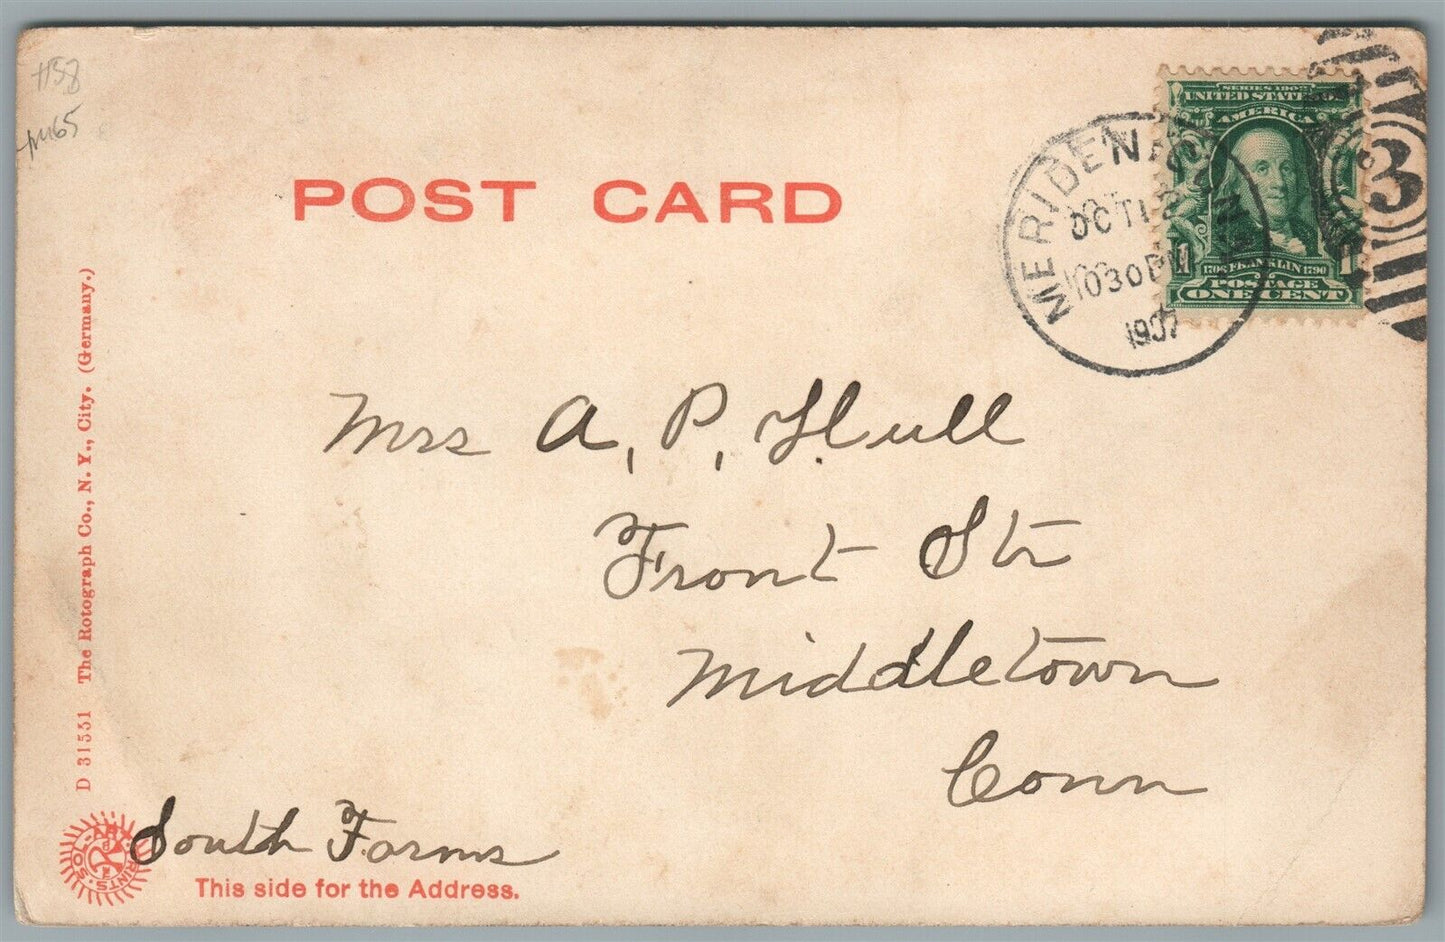 POST CARD
SERIES 1902
UNITED STATES
AMERICA
1 1
1706 FRANKLIN 1790
POSTAGE
ONE CENT
MERIDEN CONN.
OCT 12
1030 PM
1907
3
Mrs A. P. Hull
Front Str
Middletown
Conn
D 31551 The Rotograph Co., N. Y., City. (Germany.)
South Farms
SOL-ART PRINTS
This side for the Address.